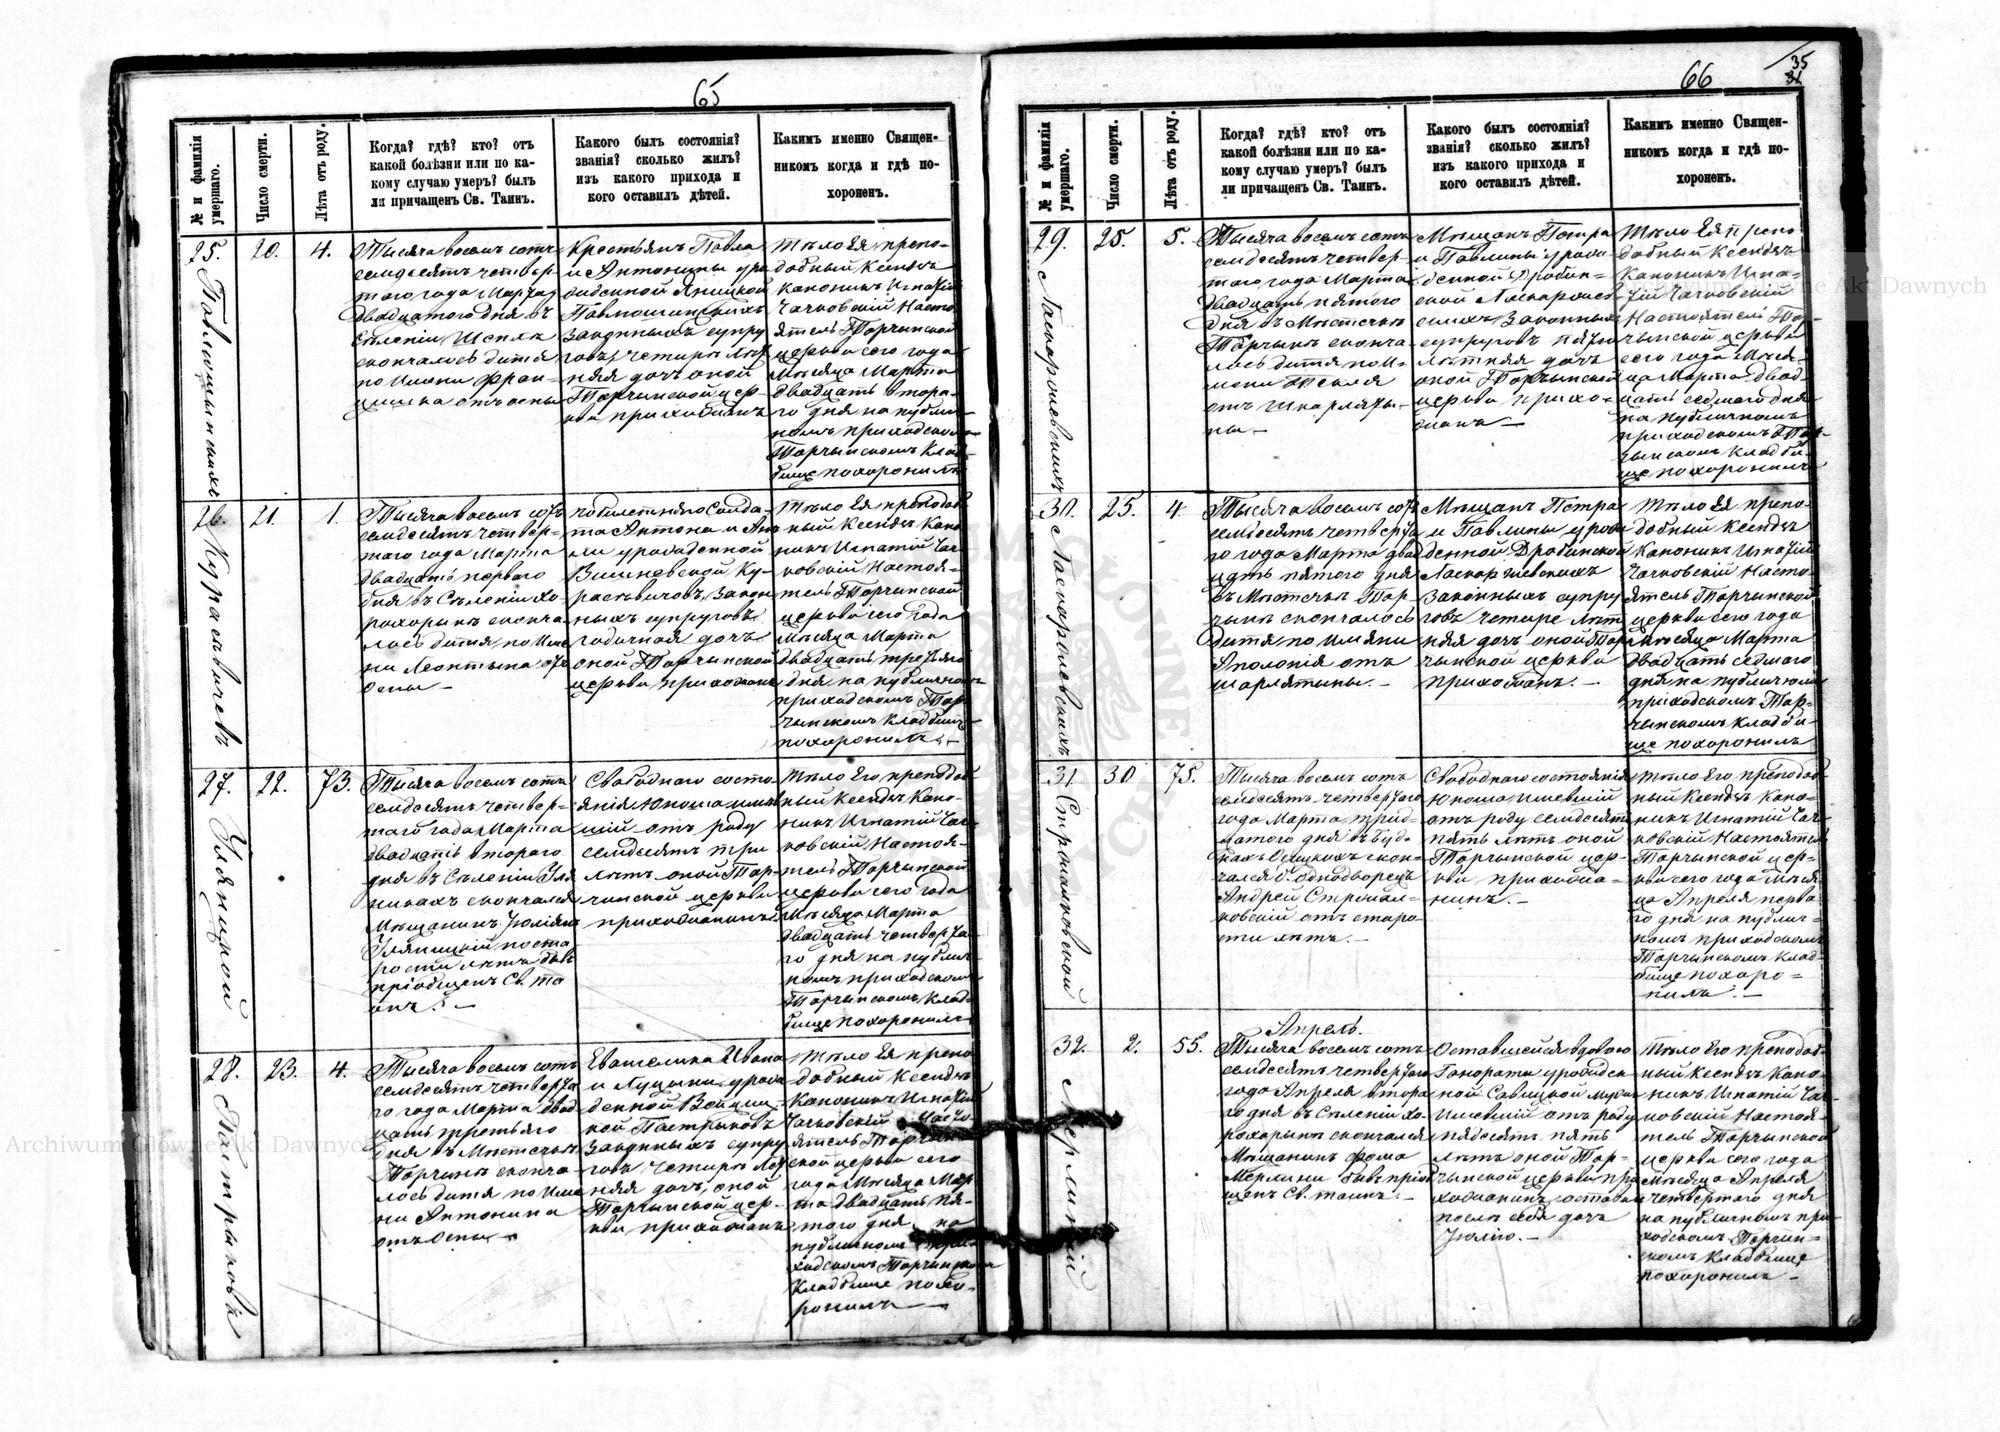 65
№ и фамилія умершаго.
Число смерти.
Лѣта отъ роду.
Когда? гдѣ? кто? отъ
какой болѣзни или по ка-
кому случаю умеръ? былъ
ли причащенъ Св. Таинъ.
Какого былъ состоянія?
званія? сколько жилъ?
изъ какого прихода и
кого оставилъ дѣтей.
Какимъ именно Священ-
никомъ когда и гдѣ по-
хороненъ.
25.
20.
4.
Тысяча восемъ сотъ
семдесятъ четвер-
таго года Марта
двадцатого дня въ
Селеніи
скончалось дитя
по имени Фран-
цишка отъ оспы
Крестьянъ Павла
и Антонины уро
жденной Яницкой
законныхъ супру
говъ, четырі лѣт
няя дочь оной
Торчинской цер-
кви прихожанъ
Тѣло Ея препо-
добный Ксендзъ
Каноникъ Игнатій
Чачковскій Насто-
ятель Торчинской
церкви сего года
Мѣсяца Марта
двадцать второ-
го дня на публич-
номъ приходскомъ
Торчинскомъ Клад-
бище похоронилъ
26.
Курасѣвичевъ
21.
1.
Тысяча восемъ сотъ
семдесятъ четвер-
таго года Марта
двадцать перваго
дня въ Селеніи Хо-
рохоринъ сконча-
лось дитя по име
ни Леонтина отъ
оспы —
Солда-
та Антона и Ан
ны урожденной
Вишневской Ку-
расѣвичовъ, Закон
ныхъ супруговъ
годичная дочь
оной Торчинской
церкви прихожанъ
Тѣло Ея преподоб
ный Ксендзъ Кано
никъ Игнатій Чач
ковскій Настоя-
тель Торчинской
церкви сего года
Мѣсяца Марта
двадцать третьяго
дня на публичномъ
приходскомъ Тор
чинскомъ кладбищѣ
похоронилъ. —
27.
Уляницкой
22.
73.
Тысяча восемъ сотъ
семдесятъ четвер-
таго года Марта
двадцать второго
дня въ Селеніи Уля
никахъ скончался
Мѣщанинъ Юліянъ
Уляницкій по ста
рости лѣтъ бывъ
пріобщенъ Св. та
инъ. —
Свободнаго состо-
янія Юноша имѣв
шій отъ роду
семдесятъ три
лѣтъ оной Тор-
чинской церкви
прихожанинъ
Тѣло Его преподоб
ный Ксендзъ Кано-
никъ Игнатій Чач-
ковскій, Настоя-
тель Торчинской
церкви сего года
Мѣсяца Марта
двадцать четверта-
го дня на публич-
номъ приходскомъ
Торчинскомъ Клад-
бище похоронилъ
28.
Пастрыковъ
23.
4.
Тысяча восемъ сотъ
семдесятъ четверта
го года Марта двад
цать третьяго
дня въ Мѣстечкѣ
Торчинѣ сконча-
лось дитя по име
ни Антонина
отъ оспы —
Евангелика Ивана
и Луцыи урож
денной Войциц-
кой Пастрыковъ
Законныхъ супру
говъ четыри лѣт
няя дочь, оной
Торчинской цер-
кви прихожанъ
Тѣло Ея препо
добный Ксендзъ
Каноникъ Игнатій
Чачковскій Насто
ятель Торчин
ской церкви сего
года Мѣсяца Мар
та двадцать пя-
того дня на
публичномъ при
ходскомъ Торчинскомъ
Кладбище похо-
ронилъ —
66
35
№ и фамилія умершаго.
Число смерти.
Лѣта отъ роду.
Когда? гдѣ? кто? отъ
какой болѣзни или по ка-
кому случаю умеръ? былъ
ли причащенъ Св. Таинъ.
Какого былъ состоянія?
званія? сколько жилъ?
изъ какого прихода и
кого оставилъ дѣтей.
Какимъ именно Священ-
никомъ когда и гдѣ по-
хороненъ.
29.
Ласкоржевскихъ
25.
5.
Тысяча восемъ сотъ
семдесятъ четвер-
таго года Марта
двадцать пятого
дня въ Мѣстечкѣ
Торчинъ сконча-
лось дитя по и-
мени Текля
отъ шкарляты-
ны. —
Мѣщанъ Петра
и Павлины урож-
денной Дробин-
ской Ласкоржев
скихъ Законныхъ
супруговъ пяти
лѣтняя дочь
оной Торчинской
церкви прихо-
жанъ —
Тѣло Ея препо
добный Ксендзъ
Каноникъ Игна-
тій Чачковскій
Настоятель Тор-
чинской церкви
сего года Мѣся-
ца Марта двад-
цать седмаго дня
на публичномъ
приходскомъ Тор-
чинскомъ Кладби-
ще похоронилъ
30.
Ласкоржевскихъ
25.
4.
Тысяча восемъ сотъ
семьдесятъ четверта
го года Марта двад
цать пятого дня
въ Мѣстечкѣ Тор-
чинъ скончалось
дитя по имяни
Аполонія отъ
шарлятыны. —
Мѣщанъ Петра
и Павлины урож
денной Дробинской
Ласкоржевскихъ
Законныхъ супру
говъ четыре лѣт
няя дочь оной Тор
чинской церкви
прихожанъ. —
Тѣло Ея препо-
добный Ксендзъ
Каноникъ Игнатій
Чачковскій Насто-
ятель Торчинской
церкви сего года
Мѣсяца Марта
двадцать седмаго
дня на публичномъ
приходскомъ Тор-
чинскомъ кладби-
ще похоронилъ
31
30
75.
Тысяча восемъ сотъ
семдесятъ четвертаго
года Марта трид-
цатого дня въ Буд-
кахъ скон-
чался б. однодворецъ
Андрей
отъ старо
сти лѣтъ. —
Свободнаго состоянія
Юноша имѣвшій
отъ роду семдесятъ
пять лѣтъ оной
Торчинской цер-
кви прихожа-
нинъ. —
Тѣло Его преподоб
ный Ксендзъ Кано-
никъ Игнатій Чач
ковскій Настоятель
Торчинской цер-
кви сего года Мѣся
ца Апреля перва
го дня на публич-
номъ приходскомъ
Торчинскомъ клад-
бище похоро-
нилъ. —
32.
2.
55.
Апрель.
Тысяча восемъ сотъ
семдесятъ четвертаго
года Апреля второ
го дня въ Селеніи Хо-
рохоринъ скончался
Мѣщанинъ Фома
Мерлини бывъ пріоб
щенъ Св. таинъ. —
Оставшейся вдовою
Гонораты урожден
ной Савицкой мужъ
Имѣвшій отъ роду
пядесятъ пять
лѣтъ оной Тор-
чинской церкви при
хожанинъ оставилъ
послѣ себя дочь
Юлію. —
Тѣло Его преподоб-
ный Ксендзъ Кано
никъ Игнатій Чач-
ковскій Настоя-
тель Торчинской
церкви сего года
Мѣсяца Апреля
четвертаго дня
на публичномъ при
ходскомъ Торчин-
скомъ Кладбище
похоронилъ —
Archiwum Główne Akt Dawnych
Archiwum Główne Akt Dawnych